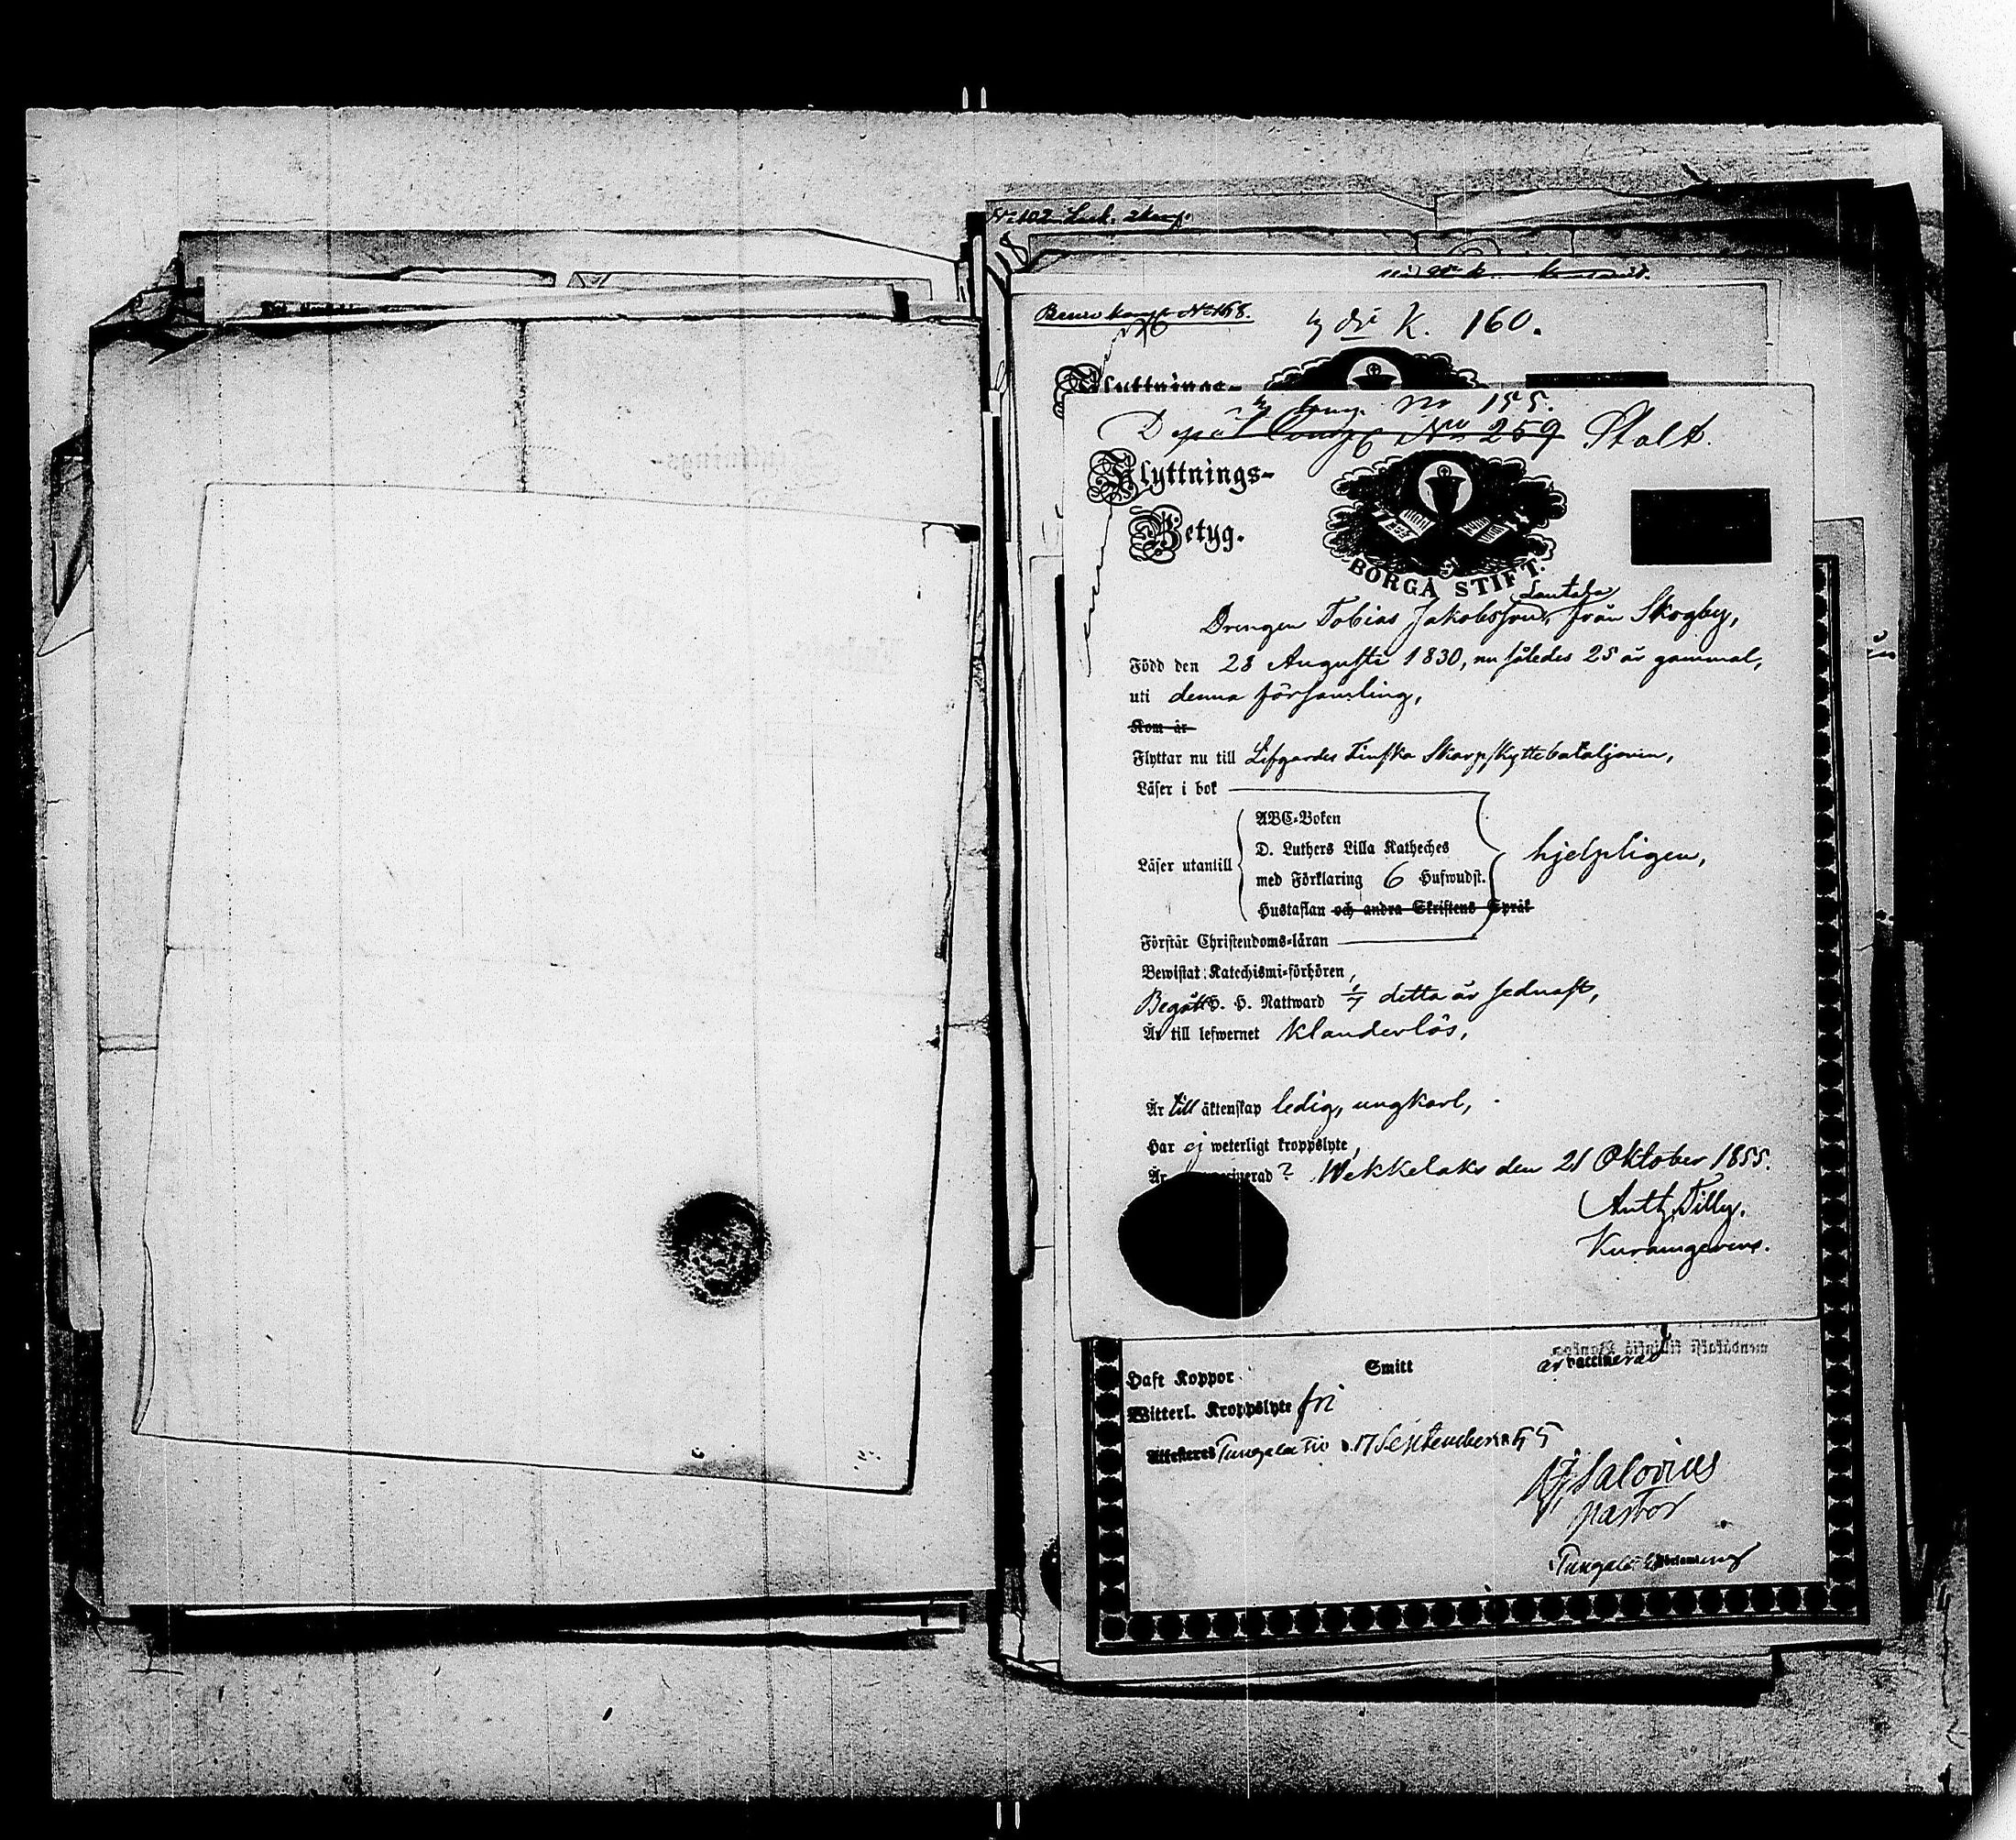 No 102
K. 160.
Flyttnings-
komp. No 155.
Depôt Comp. No 259 Stolt.
Flyttnings-
Betyg.
BORGÅ STIFT.
Lautala
Drengen Tobias Jakobsson, från Skogby,
Född den 28 Augusti 1830, nu således 25 år gammal,
uti denna församling,
Kom år
Flyttar nu till Lifgardes Finska Skarpskyttebataljonen,
Läser i bok
ABC-Boken
D. Luthers Lilla Katheches
Läser utantill
hjelpligen,
med Förklaring 6 Hufwudst.
Hustaflan och andra Skriftens Språk
Förstår Christendoms-läran
Bewistat Katechismi-förhören,
Begått H. H. Nattward 1/7 detta år sednast,
Är till lefwernet klanderlös,
Är till äktenskap ledig, ungkarl,
Har ej weterligt kroppslyte,
Är ? Wekkelaks den 21 Oktober 1855.
Anth. Tilly.
Haft Koppor. Smitt är vaccinerad
Witterl. Kroppslyte fri
Attesteras d. 17 September 1855
Salovius
pastor